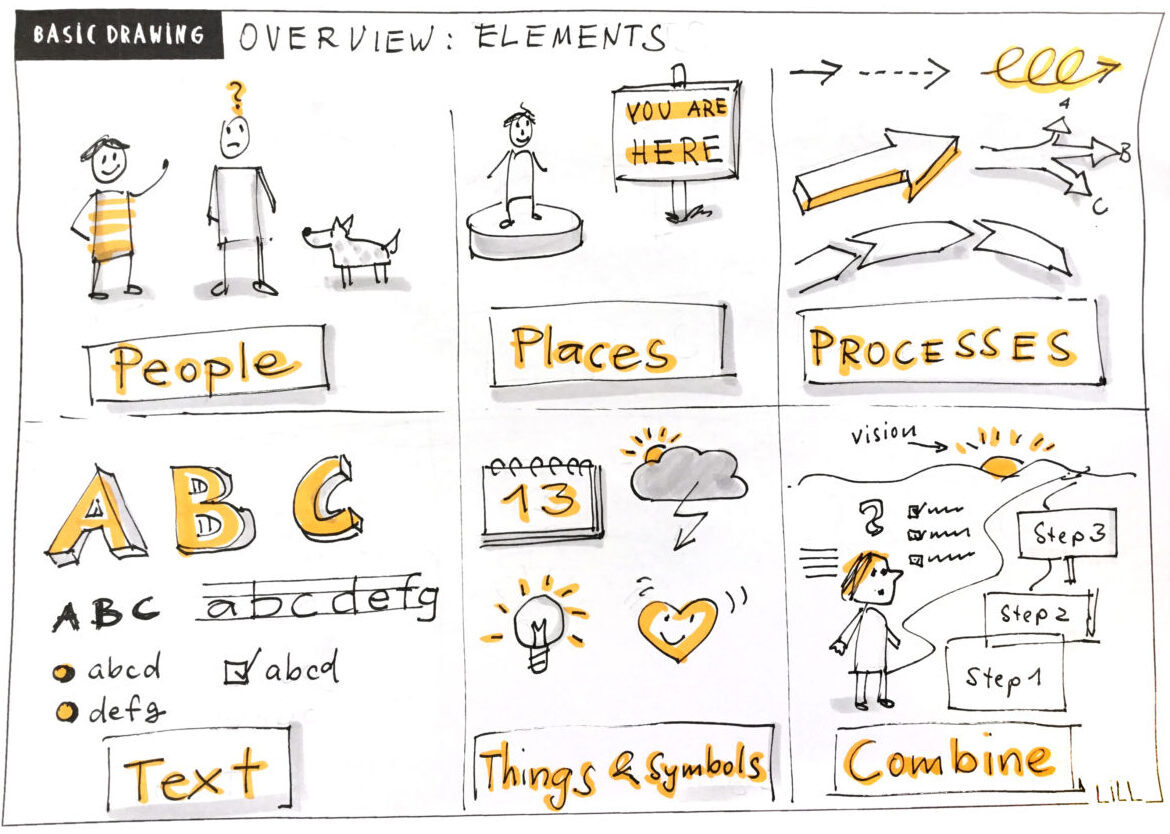 BASIC DRAWING
OVERVIEW: ELEMENTS
?
YOU ARE
HERE
A
B
C
People
Places
PROCESSES
A B C
A B C
abcdefg
abcd
defg
abcd
Text
13
Things & Symbols
vision
?
Step 3
Step 2
Step 1
Combine
LiLL